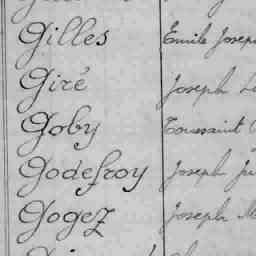 Gilles Emile Joseph
Giré Joseph
Goby Toussaint
Godefroy Joseph
Gogez Joseph